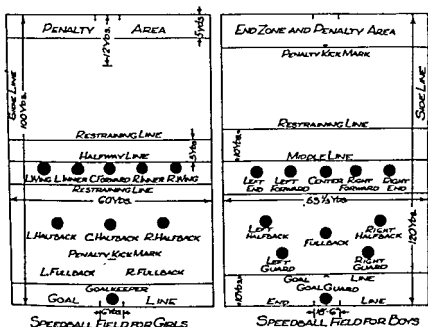 PENALTY AREA
12 Yds.
5 yds
SIDE LINE
100 Yds.
RESTRAINING LINE
HALFWAY LINE
5 Yds
L.WING L.INNER C.FORWARD R.INNER R.WING
RESTRAINING LINE
60 Yds.
L.HALFBACK C.HALFBACK R.HALFBACK
PENALTY KICK MARK
L.FULLBACK R.FULLBACK
GOALKEEPER
GOAL LINE
6 Yds
SPEEDBALL FIELD FOR GIRLS
END ZONE AND PENALTY AREA
PENALTY KICK MARK
SIDE LINE
RESTRAINING LINE
10 Yds.
MIDDLE LINE
LEFT END LEFT FORWARD CENTER RIGHT FORWARD RIGHT END
53 1/3 Yds.
120 Yds.
LEFT HALFBACK FULLBACK RIGHT HALFBACK
LEFT GUARD RIGHT GUARD
GOAL LINE
GOAL GUARD
10 Yds.
END LINE
18'-6"
SPEEDBALL FIELD FOR BOYS